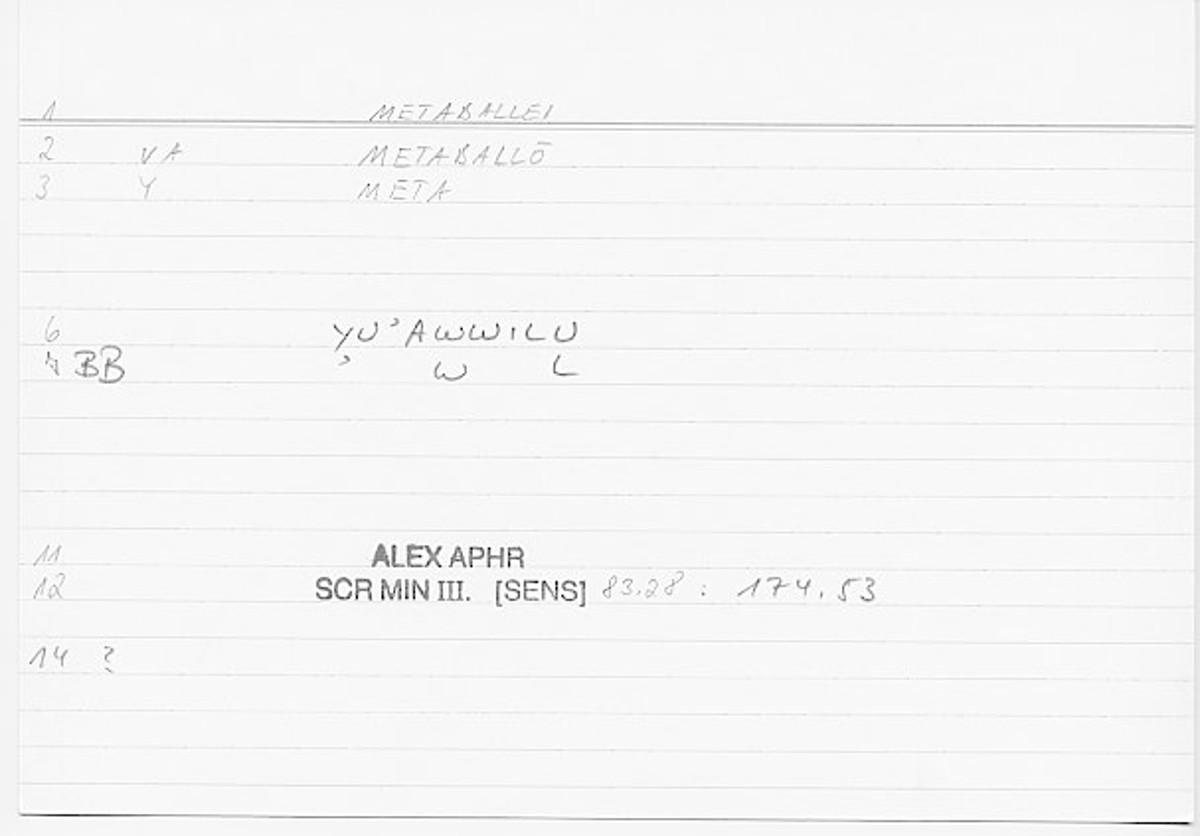 1 METABALLEI
2 VA METABALLŌ
3 Y META
6 YU'AWWILU
7 BB ' W L
11 ALEX APHR
12 SCR MIN III. [SENS] 83.28 : 174.53
14 ?